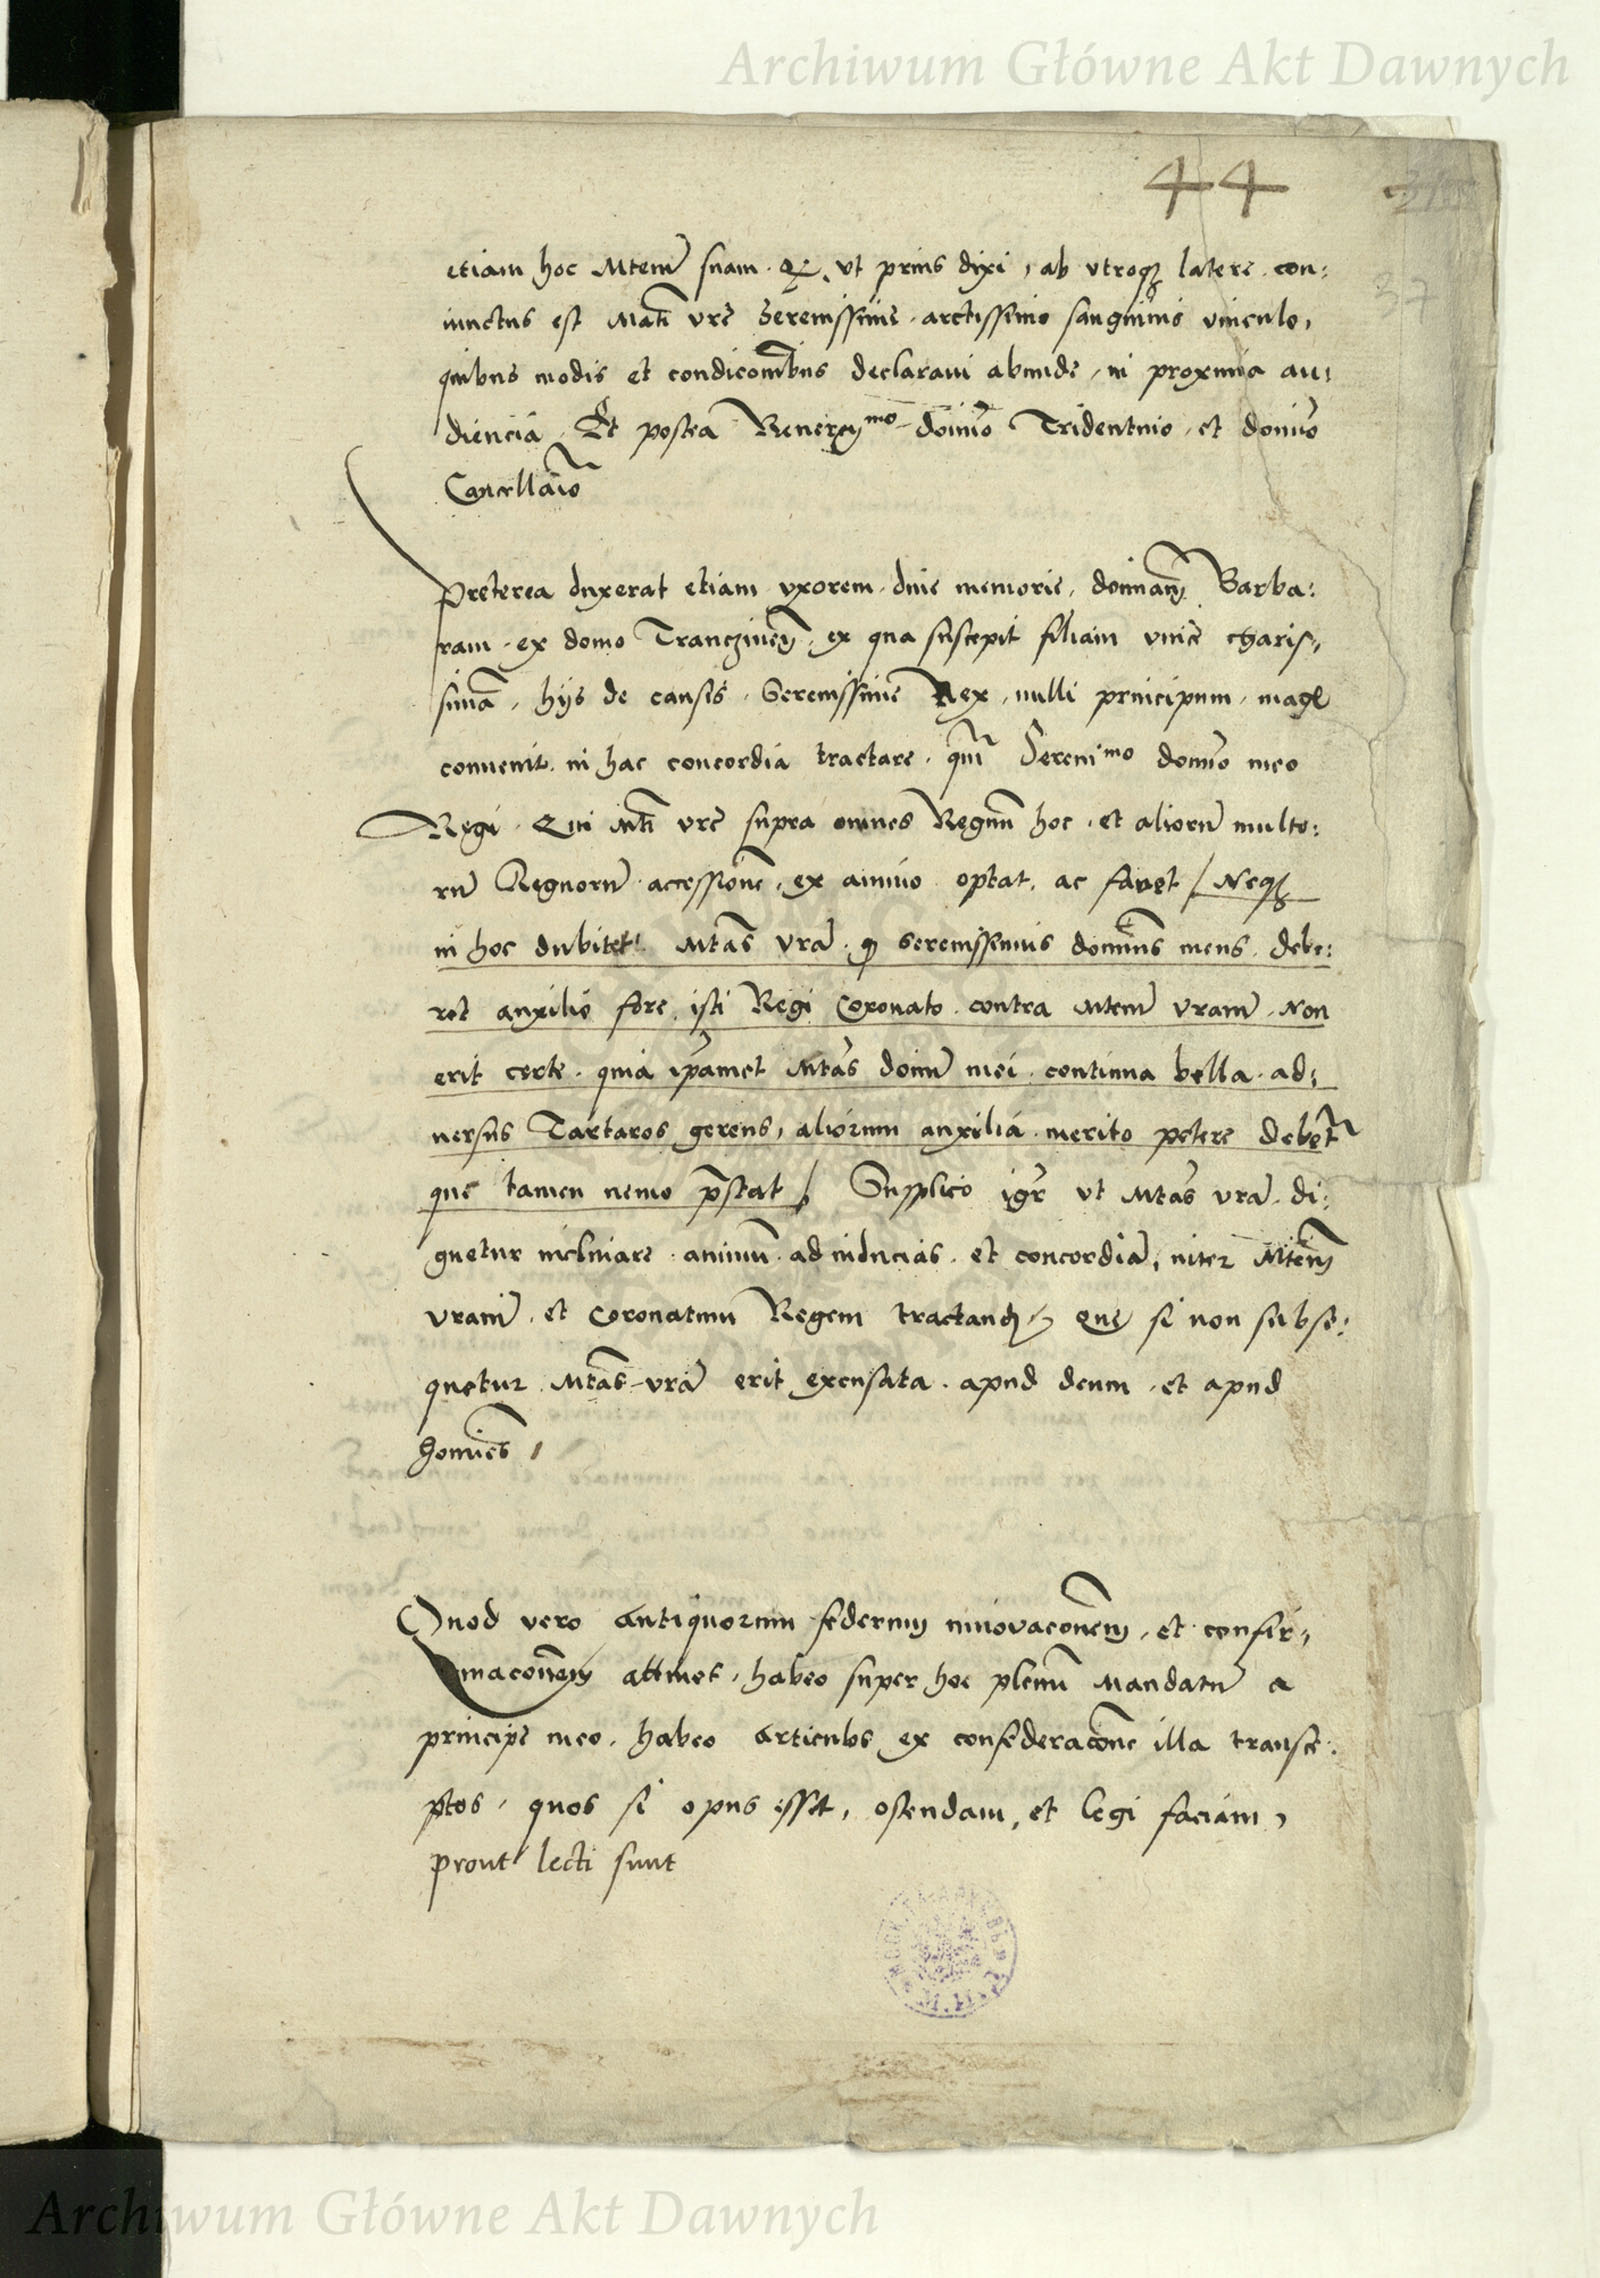 Archiwum Główne Akt Dawnych
44
37
etiam hoc Mtem̃ suam. Q, ut prius dixi, ab utroqꝫ latere con:
iunctus est Mati vre Serenissime arctissimo sanguinis vinculo,
quibus modis et condicoībus declaravi abunde, in proxima au:
diencia. Et postea Reverenᵐᵒ domīo Tridentino, et domīo
Cancellario
Preterea duxerat etiam uxorem dive memorie, domīam Barba:
ram ex domo Tranczineñ, ex qua suscepit filiam unice charis,
simā, hijs de causis, Serenissime Rex, nulli principum, mage
convenit in hac concordia tractare, quā Serenimo domīo meo
Regi. Qui Mti vre supra omnes Regnū hoc, et aliorū multo:
rū Regnorū accessione, ex animo optat, ac favet / Neqꝫ
in hoc dubitet Mtas vrā. qꝫ Serenissimus domīus meus debe:
ret auxilio fore isti Regi Coronato contra Mtem̃ vram̃. Non
erit certe. quia ip̃amet Mtas domī mei continua bella ad:
versus Tartaros gerens, aliorum auxilia merito petere debet
que tamen nemo p̄stat / Supplico igr̃ ut Mtas vrā di:
gnetur inclinare animū ad inducias et concordiā, inter Mtem̃
vram̃ et Coronatum Regem tractand. Que si non subse:
quetur Mtas vrā erit excusata apud deum, et apud
homīes /
Quod vero antiquorum federum innovacoēm, et confir,
macoēm attinet, habeo super hoc plenū Mandatū a
principe meo, habeo articulos ex confederacoē illa transc:
ptos, quos si opus esset, ostendam, et legi faciam,
prout lecti sunt
Archiwum Główne Akt Dawnych